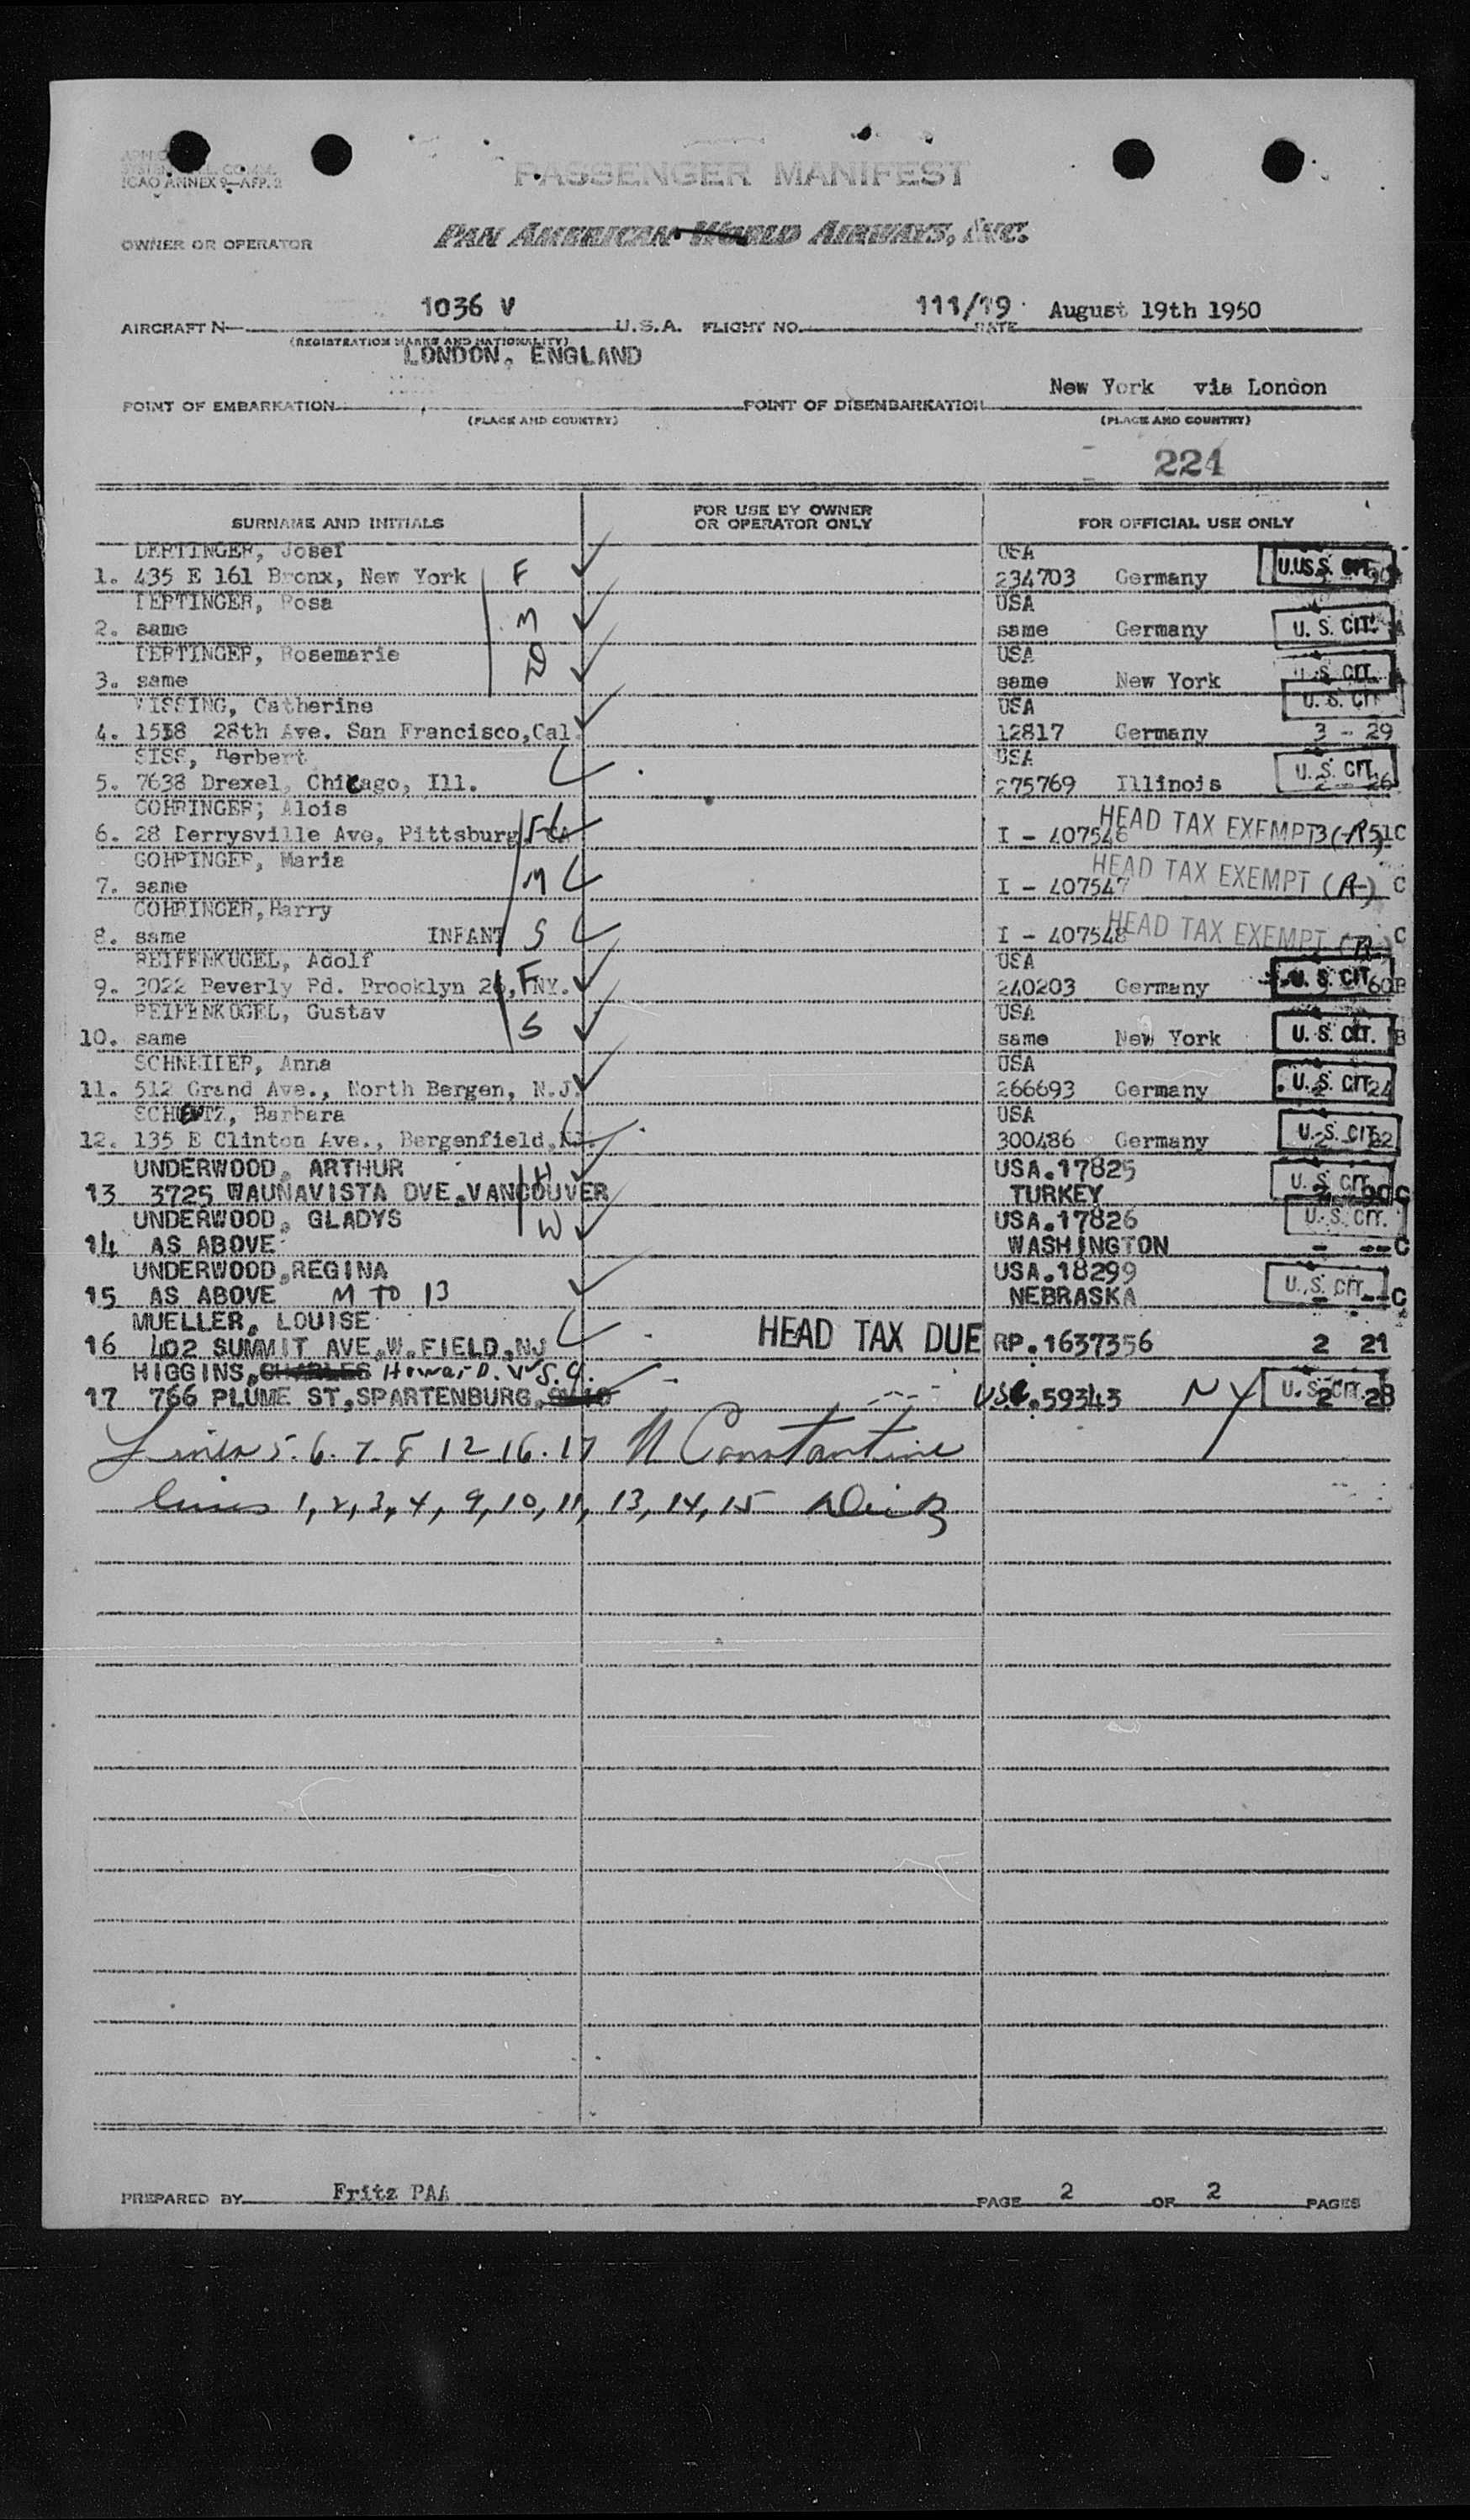 ICAO ANNEX 9—APP. 2
PASSENGER MANIFEST
OWNER OR OPERATOR PAN AMERICAN WORLD AIRWAYS, INC.
AIRCRAFT N— 1036 V U.S.A. FLIGHT NO. 111/19 DATE August 19th 1950
(REGISTRATION MARKS AND NATIONALITY)
LONDON, ENGLAND
POINT OF EMBARKATION POINT OF DISEMBARKATION New York via London
(PLACE AND COUNTRY) (PLACE AND COUNTRY)
224
SURNAME AND INITIALS FOR USE BY OWNER OR OPERATOR ONLY FOR OFFICIAL USE ONLY
DERTINGER, Josef USA
1. 435 E 161 Bronx, New York F 234703 Germany U.S. CIT.
DERTINGER, Rosa USA
2. same M same Germany U. S. CIT.
DERTINGER, Rosemarie USA
3. same D same New York U. S. CIT.
VISSING, Catherine USA U. S. CIT
4. 1518 28th Ave. San Francisco, Cal. 12817 Germany 3 - 29
SISS, Herbert USA U. S. CIT.
5. 7638 Drexel, Chicago, Ill. 275769 Illinois 2 - 26
GOHRINGER; Alois
6. 28 Derrysville Ave, Pittsburg, F I - 407546 HEAD TAX EXEMPT 3 (R) 51C
GOHRINGER, Maria
7. same M I - 407547 HEAD TAX EXEMPT (R) C
GOHRINGER, Harry
8. same INFANT S I - 407548 HEAD TAX EXEMPT (R) C
REIFFENKUGEL, Adolf USA
9. 3022 Beverly Rd. Brooklyn 26, NY. F 240203 Germany U. S. CIT. 60B
REIFENKUGEL, Gustav USA
10. same S same New York U. S. CIT. B
SCHNEIDER, Anna USA
11. 512 Grand Ave., North Bergen, N.J. 266693 Germany U. S. CIT. 24
Barbara USA
12. 135 E Clinton Ave., Bergenfield, NJ. 300486 Germany U. S. CIT. 22
UNDERWOOD, ARTHUR USA.17825
13 3725 WAUNAVISTA DVE.VANCOUVER H TURKEY U. S. CIT. C
UNDERWOOD, GLADYS USA.17826 U. S. CIT.
14 AS ABOVE W WASHINGTON - -- C
UNDERWOOD,REGINA USA.18299
15 AS ABOVE M TO 13 NEBRASKA U. S. CIT. - -- C
MUELLER, LOUISE
16 402 SUMMIT AVE,W.FIELD,NJ HEAD TAX DUE RP.1637356 2 21
HIGGINS, CHARLES Howard D. S.C.
17 766 PLUME ST,SPARTENBURG, USA.59343 NY U. S. CIT. 2 28
Lines 5. 6. 7. 8 12 16. 17 N Constantine
lines 1, 2, 3, 4, 9, 10, 11, 13, 14, 15
PREPARED BY Fritz PAA PAGE 2 OF 2 PAGES